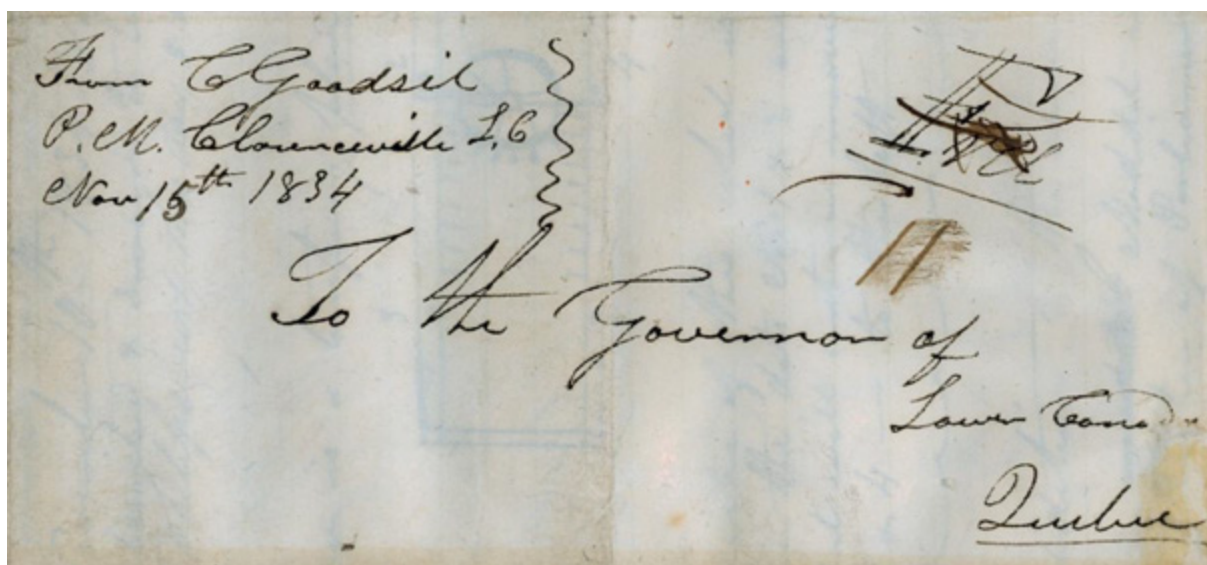 From C Goodsil
P. M. Clarenceville L, C
Nov 15th 1834
To the Governor of
Lower Canada
Quebec